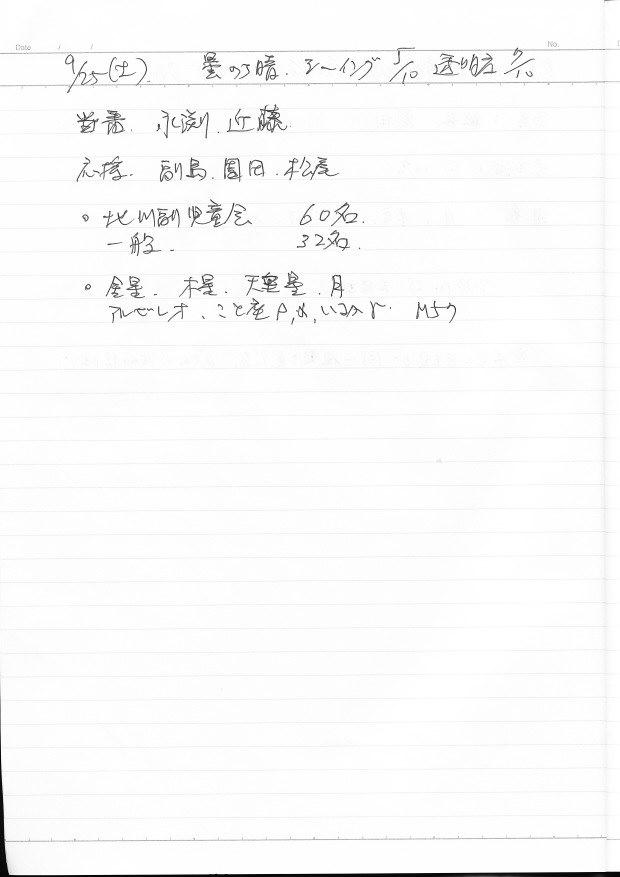 Date / / No.
9/25(土). 曇のち晴. シーイング 5/10 透明度 7/10
当番. 永渕. 近藤.
応援. 副島. 園田. 松尾
○ 北川副児童会 60名.
一般. 32名.
○ 金星. 木星. 天王星. 月
アルビレオ、こと座 β, α, いるか γ. M57